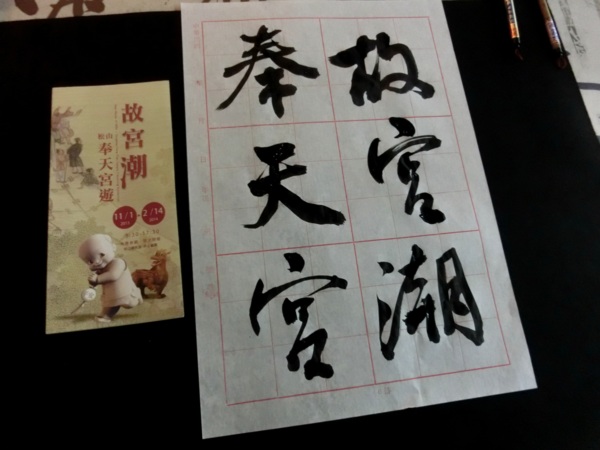 故宮潮
奉天宮
故宮潮
松山奉天宮遊
11/1
2/14